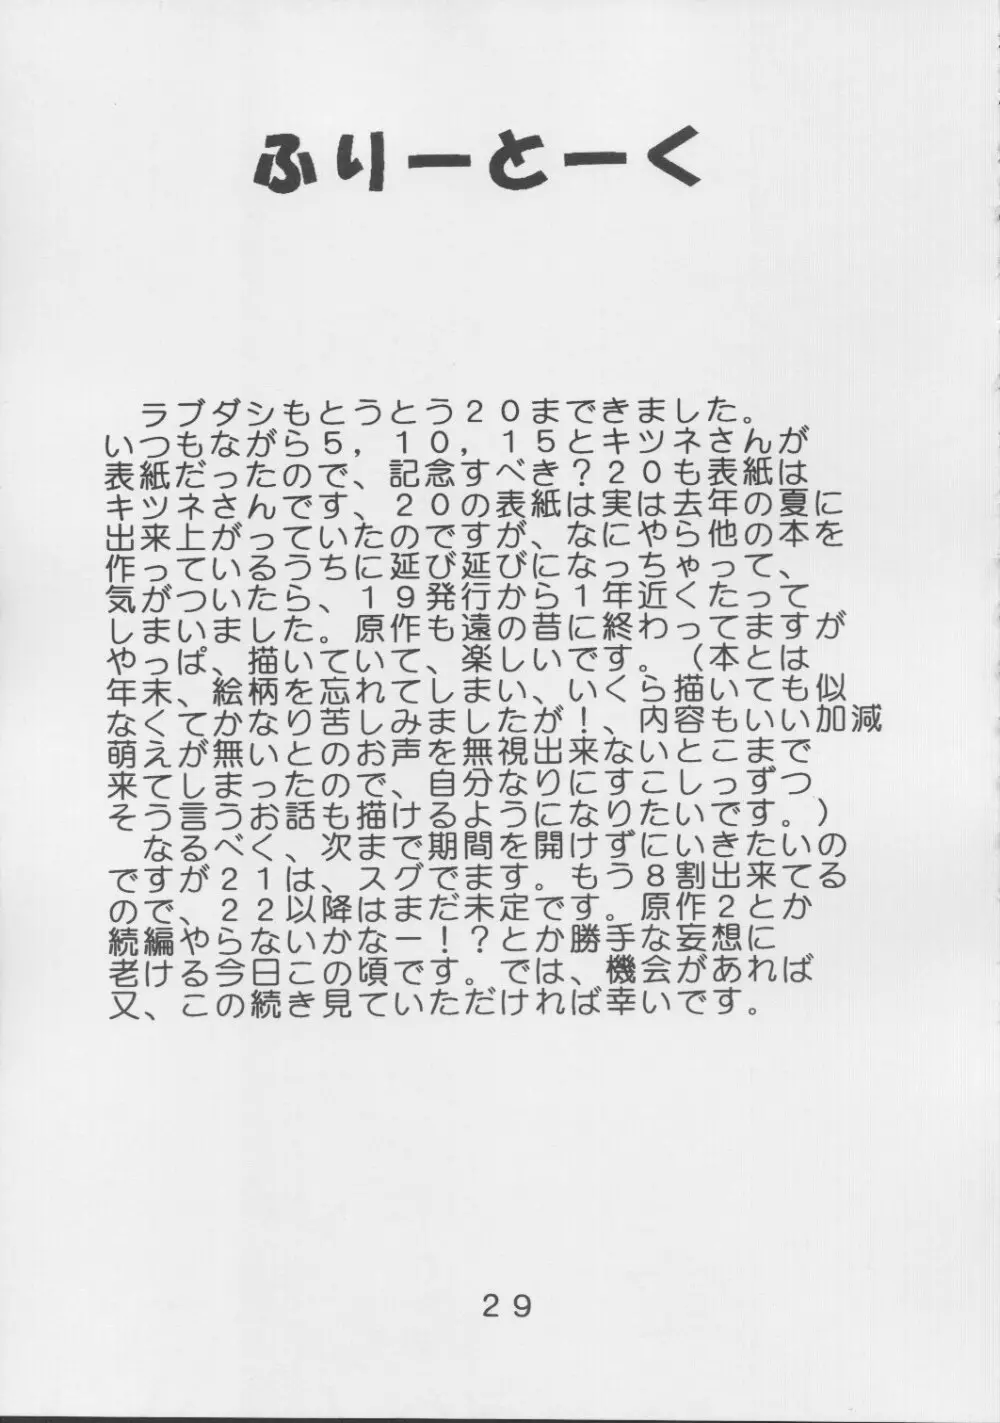 ふりーとーく
ラブダシもとうとう２０まできました。
いつもながら５，１０，１５とキツネさんが
表紙だったので、記念すべき？２０も表紙は
キツネさんです、２０の表紙は実は去年の夏に
出来上がっていたのですが、なにやら他の本を
作っているうちに延び延びになっちゃって、
気がついたら、１９発行から１年近くたって
しまいました。原作も遠の昔に終わってますが
やっぱ、描いていて、楽しいです。（本とは
年末、絵柄を忘れてしまい、いくら描いても似
なくてかなり苦しみましたが！、内容もいい加減
萌えが無いとのお声を無視出来ないとこまで
来てしまったので、自分なりにすこしっずつ
そう言うお話も描けるようになりたいです。）
なるべく、次まで期間を開けずにいきたいの
ですが２１は、スグでます。もう８割出来てる
ので、２２以降はまだ未定です。原作２とか
続編やらないかなー！？とか勝手な妄想に
老ける今日この頃です。では、機会があれば
又、この続き見ていただければ幸いです。
２９